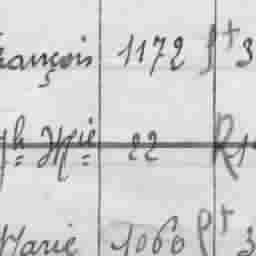 rançois 1172 f+3
ph Mie 22 R1
Marie 1060 f+ 3